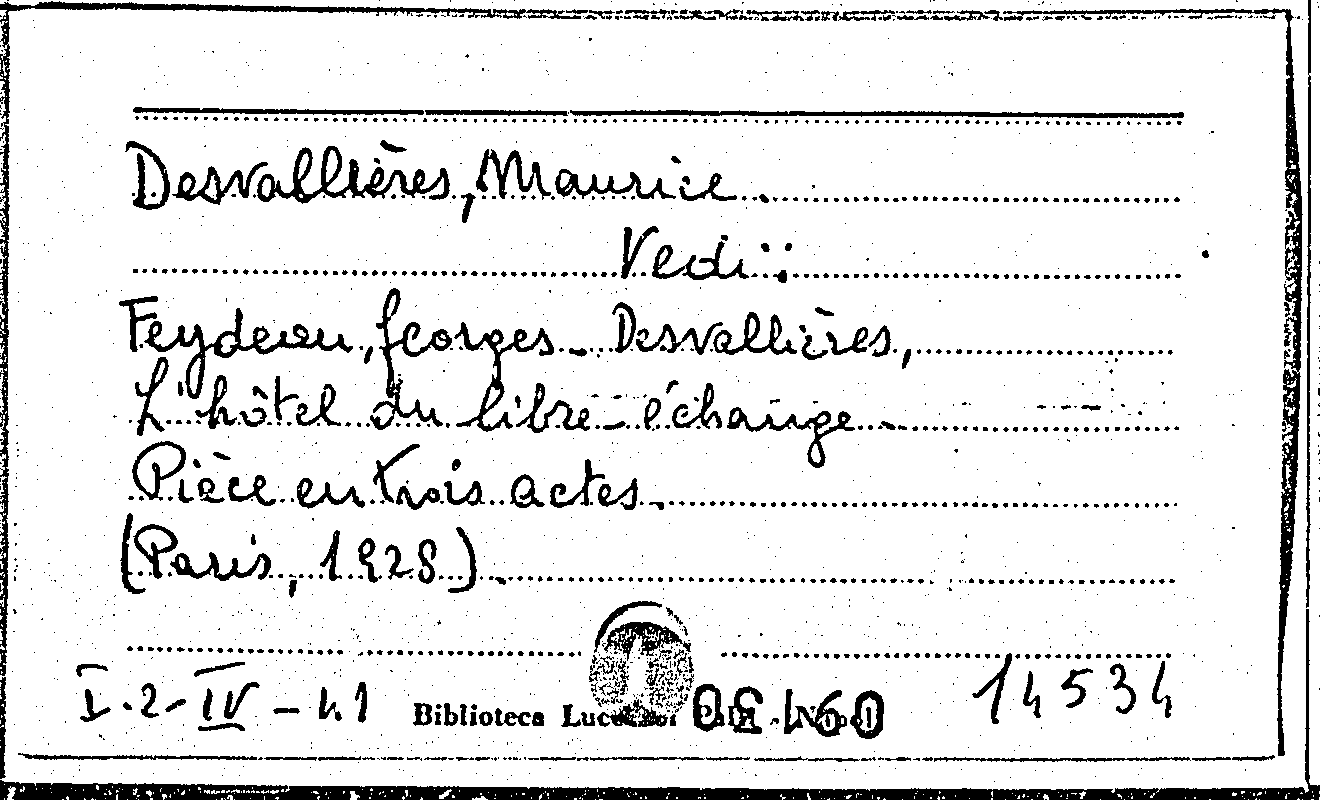 Desvallières, Maurice.
Vedi:
Feydeau, Georges - Desvallières,
L'hôtel du libre-échange -
Pièce en trois actes.
(Paris, 1928).
I.2-IV-41 Biblioteca 14534